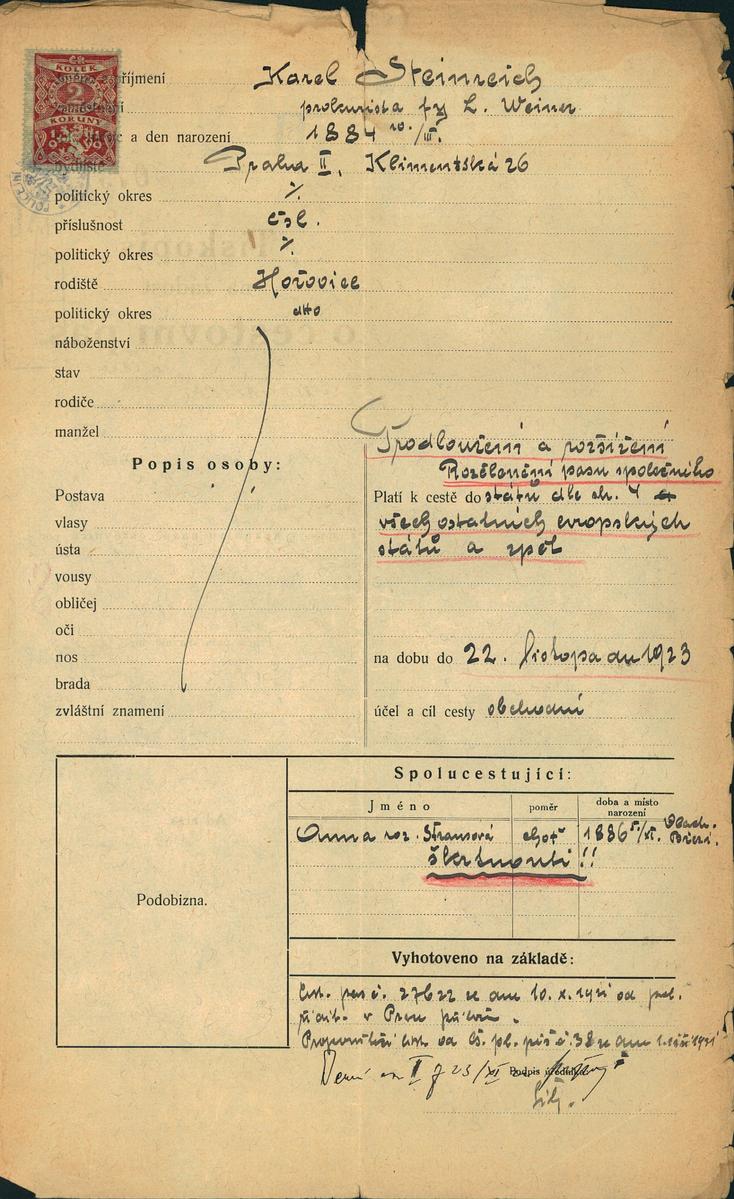 ČR
KOLEK
2
KORUNY
příjmení Karel Steinreich
prokurista fy L. Weiner
a den narození 1884 10./III.
bydliště Praha II, Klimentská 26
politický okres ⁒
příslušnost čsl.
politický okres ⁒
rodiště Hořovice
politický okres dtto
náboženství
stav
rodiče
manžel
Popis osoby:
Postava
vlasy
ústa
vousy
obličej
oči
nos
brada
zvláštní znamení
Prodloužení a rozšíření
Rozčlonění pasu společného
Platí k cestě do států dle
všech ostatních evropských
států a zpět
na dobu do 22. listopadu 1923
účel a cíl cesty obchodní
Spolucestující:
Jméno poměr doba a místo narození
Anna roz. Strausová choť 1886 5./XI.
škrtnouti!!
Podobizna.
Vyhotoveno na základě:
pas č. 27622 ze dne 10. X. 1921 od pol.
v Praze
od č. 38 ze dne 1. září 1921
Podpis úředníka